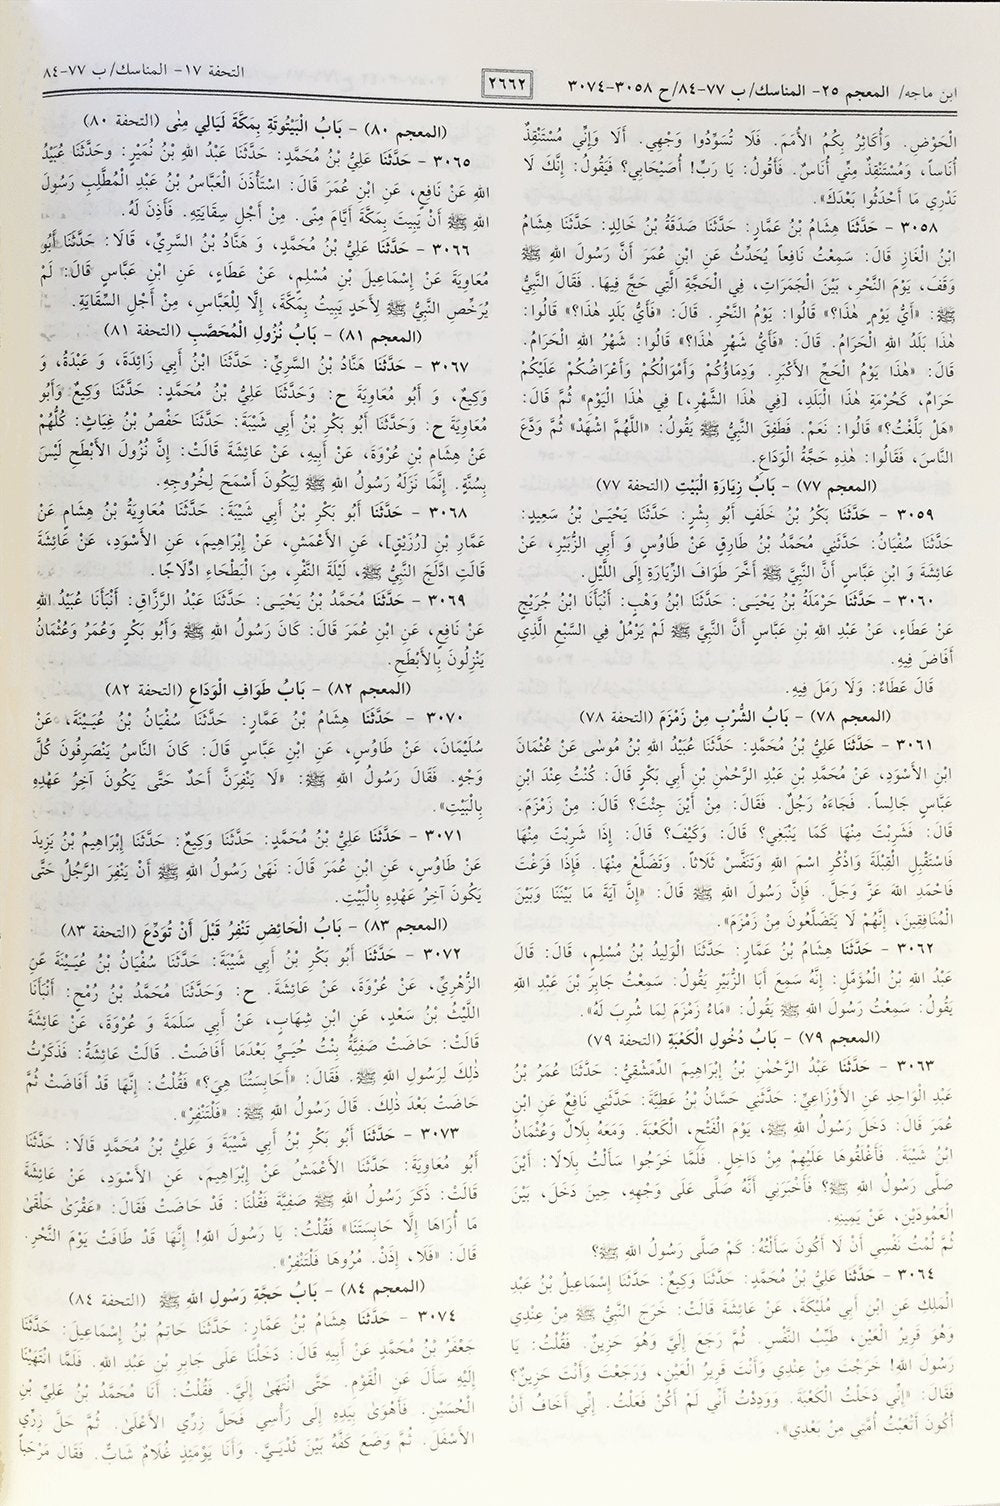 ابن ماجه/ المعجم ٢٥- المناسك/ ب ٧٧-٨٤/ح ٣٠٥٨-٣٠٧٤
٢٦٦٢
التحفة ١٧- المناسك/ ب ٧٧-٨٤
الْحَوْضِ. وَأُكَاثِرُ بِكُمُ الأُمَمَ. فَلَا تُسَوِّدُوا وَجْهِي. أَلَا وَإِنِّي مُسْتَنْقِذٌ
أُنَاساً، وَمُسْتَنْقَذٌ مِنِّي أُنَاسٌ. فَأَقُولُ: يَا رَبِّ! أُصَيْحَابِي؟ فَيَقُولُ: إِنَّكَ لَا
تَدْرِي مَا أَحْدَثُوا بَعْدَكَ».
٣٠٥٨ - حَدَّثَنَا هِشَامُ بْنُ عَمَّارٍ: حَدَّثَنَا صَدَقَةُ بْنُ خَالِدٍ: حَدَّثَنَا هِشَامُ
ابْنُ الْغَازِ قَالَ: سَمِعْتُ نَافِعاً يُحَدِّثُ عَنِ ابْنِ عُمَرَ أَنَّ رَسُولَ اللهِ ﷺ
وَقَفَ، يَوْمَ النَّحْرِ، بَيْنَ الْجَمَرَاتِ، فِي الْحَجَّةِ الَّتِي حَجَّ فِيهَا. فَقَالَ النَّبِيُّ
ﷺ: «أَيُّ يَوْمٍ هٰذَا؟» قَالُوا: يَوْمُ النَّحْرِ. قَالَ: «فَأَيُّ بَلَدٍ هٰذَا؟» قَالُوا:
هٰذَا بَلَدُ اللهِ الْحَرَامُ. قَالَ: «فَأَيُّ شَهْرٍ هٰذَا؟» قَالُوا: شَهْرُ اللهِ الْحَرَامُ.
قَالَ: «هٰذَا يَوْمُ الْحَجِّ الأَكْبَرِ. وَدِمَاؤُكُمْ وَأَمْوَالُكُمْ وَأَعْرَاضُكُمْ عَلَيْكُمْ
حَرَامٌ، كَحُرْمَةِ هٰذَا الْبَلَدِ، [فِي هٰذَا الشَّهْرِ،] فِي هٰذَا الْيَوْمِ» ثُمَّ قَالَ:
«هَلْ بَلَّغْتُ؟» قَالُوا: نَعَمْ. فَطَفِقَ النَّبِيُّ ﷺ يَقُولُ: «اللَّهُمَّ اشْهَدْ» ثُمَّ وَدَّعَ
النَّاسَ، فَقَالُوا: هٰذِهِ حَجَّةُ الْوَدَاعِ.
(المعجم ٧٧) - بَابُ زِيَارَةِ الْبَيْتِ (التحفة ٧٧)
٣٠٥٩ - حَدَّثَنَا بَكْرُ بْنُ خَلَفٍ أَبُو بِشْرٍ: حَدَّثَنَا يَحْيَى بْنُ سَعِيدٍ:
حَدَّثَنَا سُفْيَانُ: حَدَّثَنِي مُحَمَّدُ بْنُ طَارِقٍ عَنْ طَاوُسٍ وَ أَبِي الزُّبَيْرِ، عَنْ
عَائِشَةَ وَ ابْنِ عَبَّاسٍ أَنَّ النَّبِيَّ ﷺ أَخَّرَ طَوَافَ الزِّيَارَةِ إِلَى اللَّيْلِ.
٣٠٦٠ - حَدَّثَنَا حَرْمَلَةُ بْنُ يَحْيَى: حَدَّثَنَا ابْنُ وَهْبٍ: أَنْبَأَنَا ابْنُ جُرَيْجٍ
عَنْ عَطَاءٍ، عَنْ عَبْدِ اللهِ بْنِ عَبَّاسٍ أَنَّ النَّبِيَّ ﷺ لَمْ يَرْمُلْ فِي السَّبْعِ الَّذِي
أَفَاضَ فِيهِ.
قَالَ عَطَاءٌ: وَلَا رَمَلَ فِيهِ.
(المعجم ٧٨) - بَابُ الشُّرْبِ مِنْ زَمْزَمَ (التحفة ٧٨)
٣٠٦١ - حَدَّثَنَا عَلِيُّ بْنُ مُحَمَّدٍ: حَدَّثَنَا عُبَيْدُ اللهِ بْنُ مُوسَى عَنْ عُثْمَانَ
ابْنِ الأَسْوَدِ، عَنْ مُحَمَّدِ بْنِ عَبْدِ الرَّحْمٰنِ بْنِ أَبِي بَكْرٍ قَالَ: كُنْتُ عِنْدَ ابْنِ
عَبَّاسٍ جَالِساً. فَجَاءَهُ رَجُلٌ. فَقَالَ: مِنْ أَيْنَ جِئْتَ؟ قَالَ: مِنْ زَمْزَمَ.
قَالَ: فَشَرِبْتَ مِنْهَا كَمَا يَنْبَغِي؟ قَالَ: وَكَيْفَ؟ قَالَ: إِذَا شَرِبْتَ مِنْهَا
فَاسْتَقْبِلِ الْقِبْلَةَ وَاذْكُرِ اسْمَ اللهِ وَتَنَفَّسْ ثَلَاثاً. وَتَضَلَّعْ مِنْهَا. فَإِذَا فَرَغْتَ
فَاحْمَدِ اللهَ عَزَّ وَجَلَّ. فَإِنَّ رَسُولَ اللهِ ﷺ قَالَ: «إِنَّ آيَةَ مَا بَيْنَنَا وَبَيْنَ
الْمُنَافِقِينَ، إِنَّهُمْ لَا يَتَضَلَّعُونَ مِنْ زَمْزَمَ».
٣٠٦٢ - حَدَّثَنَا هِشَامُ بْنُ عَمَّارٍ: حَدَّثَنَا الْوَلِيدُ بْنُ مُسْلِمٍ، قَالَ: قَالَ
عَبْدُ اللهِ بْنُ الْمُؤَمَّلِ: إِنَّهُ سَمِعَ أَبَا الزُّبَيْرِ يَقُولُ: سَمِعْتُ جَابِرَ بْنَ عَبْدِ اللهِ
يَقُولُ: سَمِعْتُ رَسُولَ اللهِ ﷺ يَقُولُ: «مَاءُ زَمْزَمَ لِمَا شُرِبَ لَهُ».
(المعجم ٧٩) - بَابُ دُخُولِ الْكَعْبَةِ (التحفة ٧٩)
٣٠٦٣ - حَدَّثَنَا عَبْدُ الرَّحْمٰنِ بْنُ إِبْرَاهِيمَ الدِّمَشْقِيُّ: حَدَّثَنَا عُمَرُ بْنُ
عَبْدِ الْوَاحِدِ عَنِ الأَوْزَاعِيِّ: حَدَّثَنِي حَسَّانُ بْنُ عَطِيَّةَ: حَدَّثَنِي نَافِعٌ عَنِ ابْنِ
عُمَرَ قَالَ: دَخَلَ رَسُولُ اللهِ ﷺ، يَوْمَ الْفَتْحِ، الْكَعْبَةَ. وَمَعَهُ بِلَالٌ وَعُثْمَانُ
ابْنُ شَيْبَةَ. فَأَغْلَقُوهَا عَلَيْهِمْ مِنْ دَاخِلٍ. فَلَمَّا خَرَجُوا سَأَلْتُ بِلَالًا: أَيْنَ
صَلَّى رَسُولُ اللهِ ﷺ؟ فَأَخْبَرَنِي أَنَّهُ صَلَّى عَلَى وَجْهِهِ، حِينَ دَخَلَ، بَيْنَ
الْعَمُودَيْنِ، عَنْ يَمِينِهِ.
ثُمَّ لُمْتُ نَفْسِي أَنْ لَا أَكُونَ سَأَلْتُهُ: كَمْ صَلَّى رَسُولُ اللهِ ﷺ؟
٣٠٦٤ - حَدَّثَنَا عَلِيُّ بْنُ مُحَمَّدٍ: حَدَّثَنَا وَكِيعٌ: حَدَّثَنَا إِسْمَاعِيلُ بْنُ عَبْدِ
الْمَلِكِ عَنِ ابْنِ أَبِي مُلَيْكَةَ، عَنْ عَائِشَةَ قَالَتْ: خَرَجَ النَّبِيُّ ﷺ مِنْ عِنْدِي
وَهُوَ قَرِيرُ الْعَيْنِ، طَيِّبُ النَّفْسِ. ثُمَّ رَجَعَ إِلَيَّ وَهُوَ حَزِينٌ. فَقُلْتُ: يَا
رَسُولَ اللهِ! خَرَجْتَ مِنْ عِنْدِي وَأَنْتَ قَرِيرُ الْعَيْنِ، وَرَجَعْتَ وَأَنْتَ حَزِينٌ؟
فَقَالَ: «إِنِّي دَخَلْتُ الْكَعْبَةَ. وَوَدِدْتُ أَنِّي لَمْ أَكُنْ فَعَلْتُ. إِنِّي أَخَافُ أَنْ
أَكُونَ أَتْعَبْتُ أُمَّتِي مِنْ بَعْدِي».
(المعجم ٨٠) - بَابُ الْبَيْتُوتَةِ بِمَكَّةَ لَيَالِيَ مِنًى (التحفة ٨٠)
٣٠٦٥ - حَدَّثَنَا عَلِيُّ بْنُ مُحَمَّدٍ: حَدَّثَنَا عَبْدُ اللهِ بْنُ نُمَيْرٍ: وحَدَّثَنَا عُبَيْدُ
اللهِ عَنْ نَافِعٍ، عَنِ ابْنِ عُمَرَ قَالَ: اسْتَأْذَنَ الْعَبَّاسُ بْنُ عَبْدِ الْمُطَّلِبِ رَسُولَ
اللهِ ﷺ أَنْ يَبِيتَ بِمَكَّةَ أَيَّامَ مِنًى. مِنْ أَجْلِ سِقَايَتِهِ. فَأَذِنَ لَهُ.
٣٠٦٦ - حَدَّثَنَا عَلِيُّ بْنُ مُحَمَّدٍ، وَ هَنَّادُ بْنُ السَّرِيِّ، قَالَا: حَدَّثَنَا أَبُو
مُعَاوِيَةَ عَنْ إِسْمَاعِيلَ بْنِ مُسْلِمٍ، عَنْ عَطَاءٍ، عَنِ ابْنِ عَبَّاسٍ قَالَ: لَمْ
يُرَخِّصِ النَّبِيُّ ﷺ لِأَحَدٍ يَبِيتُ بِمَكَّةَ، إِلَّا لِلْعَبَّاسِ، مِنْ أَجْلِ السِّقَايَةِ.
(المعجم ٨١) - بَابُ نُزُولِ الْمُحَصَّبِ (التحفة ٨١)
٣٠٦٧ - حَدَّثَنَا هَنَّادُ بْنُ السَّرِيِّ: حَدَّثَنَا ابْنُ أَبِي زَائِدَةَ، وَ عَبْدَةُ، وَ
وَكِيعٌ، وَ أَبُو مُعَاوِيَةَ ح: وَحَدَّثَنَا عَلِيُّ بْنُ مُحَمَّدٍ: حَدَّثَنَا وَكِيعٌ وَأَبُو
مُعَاوِيَةَ ح: وَحَدَّثَنَا أَبُو بَكْرِ بْنُ أَبِي شَيْبَةَ: حَدَّثَنَا حَفْصُ بْنُ غِيَاثٍ: كُلُّهُمْ
عَنْ هِشَامِ بْنِ عُرْوَةَ، عَنْ أَبِيهِ، عَنْ عَائِشَةَ قَالَتْ: إِنَّ نُزُولَ الأَبْطَحِ لَيْسَ
بِسُنَّةٍ. إِنَّمَا نَزَلَهُ رَسُولُ اللهِ ﷺ لِيَكُونَ أَسْمَحَ لِخُرُوجِهِ.
٣٠٦٨ - حَدَّثَنَا أَبُو بَكْرِ بْنُ أَبِي شَيْبَةَ: حَدَّثَنَا مُعَاوِيَةُ بْنُ هِشَامٍ عَنْ
عَمَّارِ بْنِ [رُزَيْقٍ]، عَنِ الأَعْمَشِ، عَنْ إِبْرَاهِيمَ، عَنِ الأَسْوَدِ، عَنْ عَائِشَةَ
قَالَتِ ادَّلَجَ النَّبِيُّ ﷺ، لَيْلَةَ النَّفْرِ، مِنَ الْبَطْحَاءِ ادِّلَاجًا.
٣٠٦٩ - حَدَّثَنَا مُحَمَّدُ بْنُ يَحْيَى: حَدَّثَنَا عَبْدُ الرَّزَّاقِ: أَنْبَأَنَا عُبَيْدُ اللهِ
عَنْ نَافِعٍ، عَنِ ابْنِ عُمَرَ قَالَ: كَانَ رَسُولُ اللهِ ﷺ وَأَبُو بَكْرٍ وَعُمَرُ وَعُثْمَانُ
يَنْزِلُونَ بِالأَبْطَحِ.
(المعجم ٨٢) - بَابُ طَوَافِ الْوَدَاعِ (التحفة ٨٢)
٣٠٧٠ - حَدَّثَنَا هِشَامُ بْنُ عَمَّارٍ: حَدَّثَنَا سُفْيَانُ بْنُ عُيَيْنَةَ، عَنْ
سُلَيْمَانَ، عَنْ طَاوُسٍ، عَنِ ابْنِ عَبَّاسٍ قَالَ: كَانَ النَّاسُ يَنْصَرِفُونَ كُلَّ
وَجْهٍ. فَقَالَ رَسُولُ اللهِ ﷺ: «لَا يَنْفِرَنَّ أَحَدٌ حَتَّى يَكُونَ آخِرُ عَهْدِهِ
بِالْبَيْتِ».
٣٠٧١ - حَدَّثَنَا عَلِيُّ بْنُ مُحَمَّدٍ: حَدَّثَنَا وَكِيعٌ: حَدَّثَنَا إِبْرَاهِيمُ بْنُ يَزِيدَ
عَنْ طَاوُسٍ، عَنِ ابْنِ عُمَرَ قَالَ: نَهَى رَسُولُ اللهِ ﷺ أَنْ يَنْفِرَ الرَّجُلُ حَتَّى
يَكُونَ آخِرُ عَهْدِهِ بِالْبَيْتِ.
(المعجم ٨٣) - بَابُ الْحَائِضِ تَنْفِرُ قَبْلَ أَنْ تُوَدِّعَ (التحفة ٨٣)
٣٠٧٢ - حَدَّثَنَا أَبُو بَكْرِ بْنُ أَبِي شَيْبَةَ: حَدَّثَنَا سُفْيَانُ بْنُ عُيَيْنَةَ عَنِ
الزُّهْرِيِّ، عَنْ عُرْوَةَ، عَنْ عَائِشَةَ. ح: وَحَدَّثَنَا مُحَمَّدُ بْنُ رُمْحٍ: أَنْبَأَنَا
اللَّيْثُ بْنُ سَعْدٍ، عَنِ ابْنِ شِهَابٍ، عَنْ أَبِي سَلَمَةَ وَ عُرْوَةَ، عَنْ عَائِشَةَ
قَالَتْ: حَاضَتْ صَفِيَّةُ بِنْتُ حُيَيٍّ بَعْدَمَا أَفَاضَتْ. قَالَتْ عَائِشَةُ: فَذَكَرْتُ
ذٰلِكَ لِرَسُولِ اللهِ ﷺ. فَقَالَ: «أَحَابِسَتُنَا هِيَ؟» فَقُلْتُ: إِنَّهَا قَدْ أَفَاضَتْ ثُمَّ
حَاضَتْ بَعْدَ ذٰلِكَ. قَالَ رَسُولُ اللهِ ﷺ: «فَلْتَنْفِرْ».
٣٠٧٣ - حَدَّثَنَا أَبُو بَكْرِ بْنُ أَبِي شَيْبَةَ وَ عَلِيُّ بْنُ مُحَمَّدٍ قَالَا: حَدَّثَنَا
أَبُو مُعَاوِيَةَ: حَدَّثَنَا الأَعْمَشُ عَنْ إِبْرَاهِيمَ، عَنِ الأَسْوَدِ، عَنْ عَائِشَةَ
قَالَتْ: ذَكَرَ رَسُولُ اللهِ ﷺ صَفِيَّةَ فَقُلْنَا: قَدْ حَاضَتْ فَقَالَ: «عَقْرَى حَلْقَى
مَا أُرَاهَا إِلَّا حَابِسَتَنَا» فَقُلْتُ: يَا رَسُولَ اللهِ! إِنَّهَا قَدْ طَافَتْ يَوْمَ النَّحْرِ.
قَالَ: «فَلَا، إِذَنْ. مُرُوهَا فَلْتَنْفِرْ».
(المعجم ٨٤) - بَابُ حَجَّةِ رَسُولِ اللهِ ﷺ (التحفة ٨٤)
٣٠٧٤ - حَدَّثَنَا هِشَامُ بْنُ عَمَّارٍ: حَدَّثَنَا حَاتِمُ بْنُ إِسْمَاعِيلَ: حَدَّثَنَا
جَعْفَرُ بْنُ مُحَمَّدٍ عَنْ أَبِيهِ قَالَ: دَخَلْنَا عَلَى جَابِرِ بْنِ عَبْدِ اللهِ. فَلَمَّا انْتَهَيْنَا
إِلَيْهِ سَأَلَ عَنِ الْقَوْمِ. حَتَّى انْتَهَى إِلَيَّ. فَقُلْتُ: أَنَا مُحَمَّدُ بْنُ عَلِيِّ بْنِ
الْحُسَيْنِ. فَأَهْوَى بِيَدِهِ إِلَى رَأْسِي فَحَلَّ زِرِّي الأَعْلَى. ثُمَّ حَلَّ زِرِّي
الأَسْفَلَ. ثُمَّ وَضَعَ كَفَّهُ بَيْنَ ثَدْيَيَّ. وَأَنَا يَوْمَئِذٍ غُلَامٌ شَابٌّ. فَقَالَ مَرْحَباً